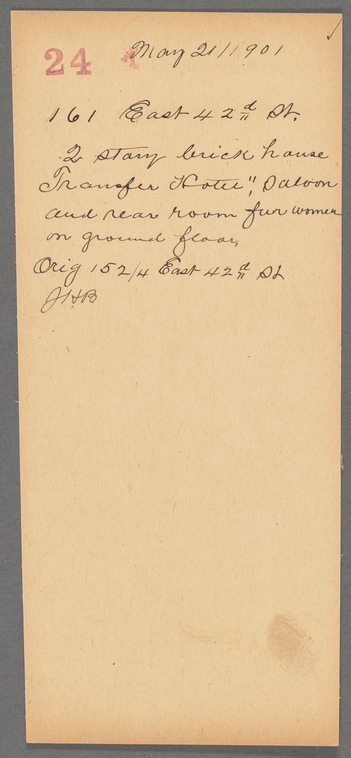 24 4 May 21/1901
161 East 42d St.
2 story brick house
Transfer Hotel", Saloon
and rear room for women
on ground floor,
Orig 152/4 East 42d St
JHB